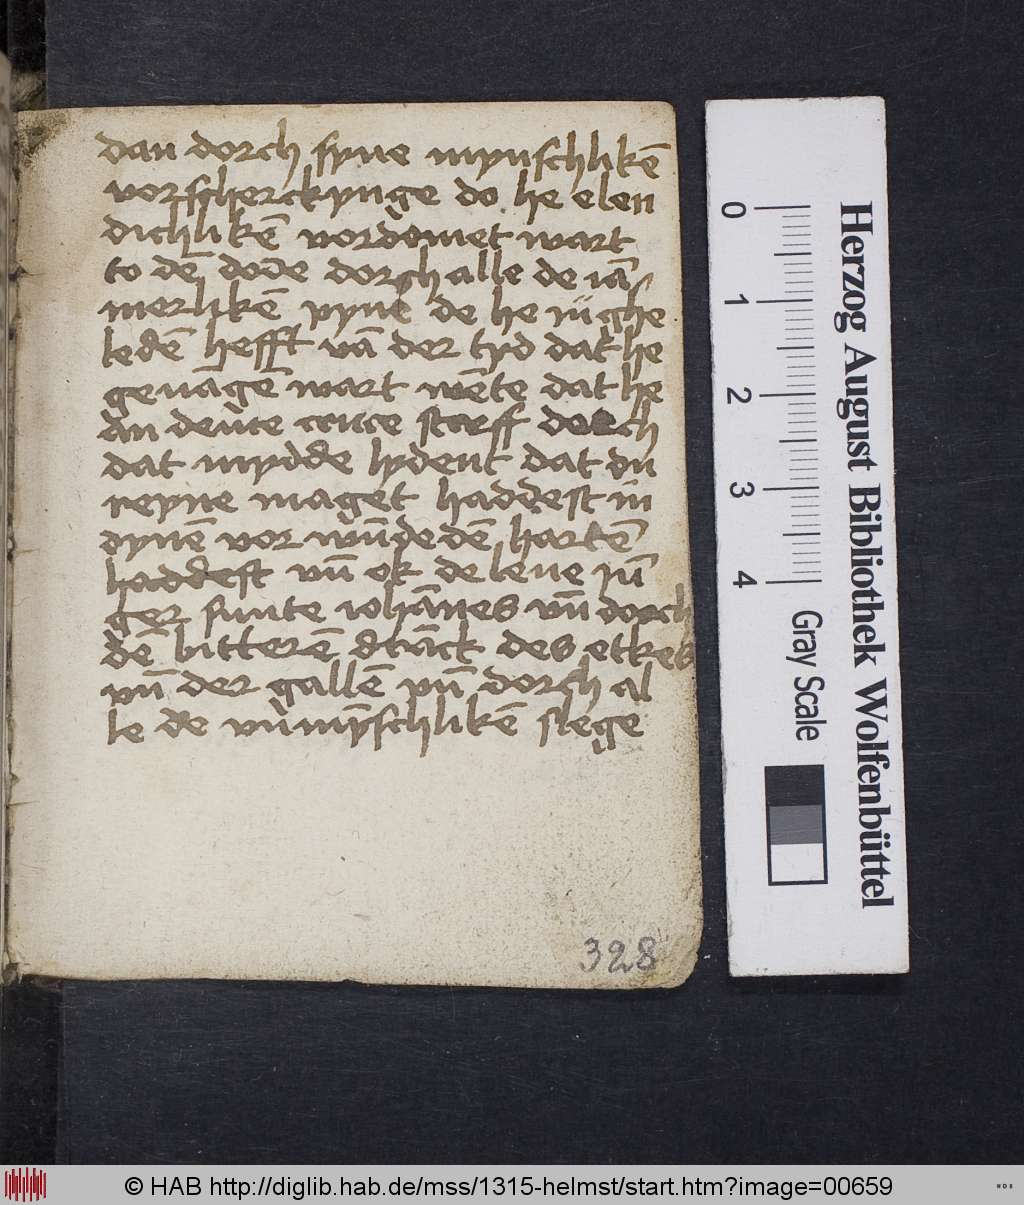 dan dorch syne mynschlikē
vorscherckynge do he elen
dichlikē vordomet wart
to dē dode dorch alle de iā
merlikē pyne de he
ledē hefft vā der tyd dat he
gevāgē wart wēte dat he
an deme cruce starff dorch
dat mydde lydent dat du
reyne maget haddest in
dynē vorwūdedē hartē
haddest vn̄ ok de leue iū
ger sunte iohānes vn̄ dorch
dē bitterē drāck des etkes
vn̄ der gallē vn̄ dorch al
le de vnmȳschlikē slege
328
Herzog August Bibliothek Wolfenbüttel
0 1 2 3 4
Gray Scale
© HAB http://diglib.hab.de/mss/1315-helmst/start.htm?image=00659